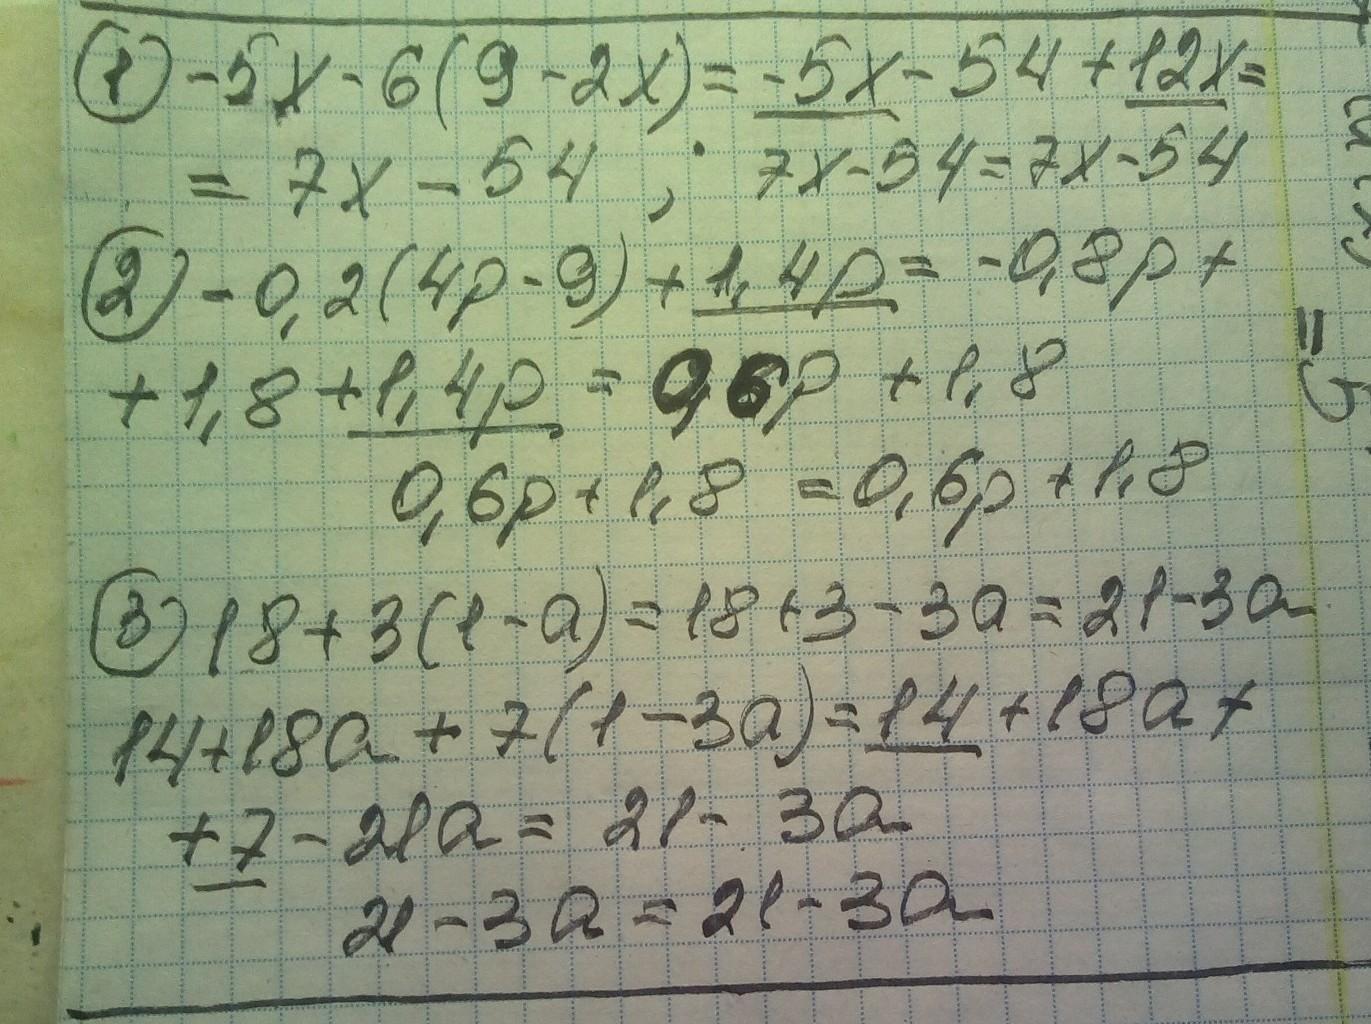 ① -5x - 6(9 - 2x) = -5x - 54 + 12x =
= 7x - 54 ; 7x - 54 = 7x - 54
② - 0,2(4p - 9) + 1,4p = -0,8p +
+ 1,8 + 1,4p = 0,6p + 1,8
0,6p + 1,8 = 0,6p + 1,8
③ 18 + 3(1 - a) = 18 + 3 - 3a = 21 - 3a
14 + 18a + 7(1 - 3a) = 14 + 18a +
+ 7 - 21a = 21 - 3a
21 - 3a = 21 - 3a